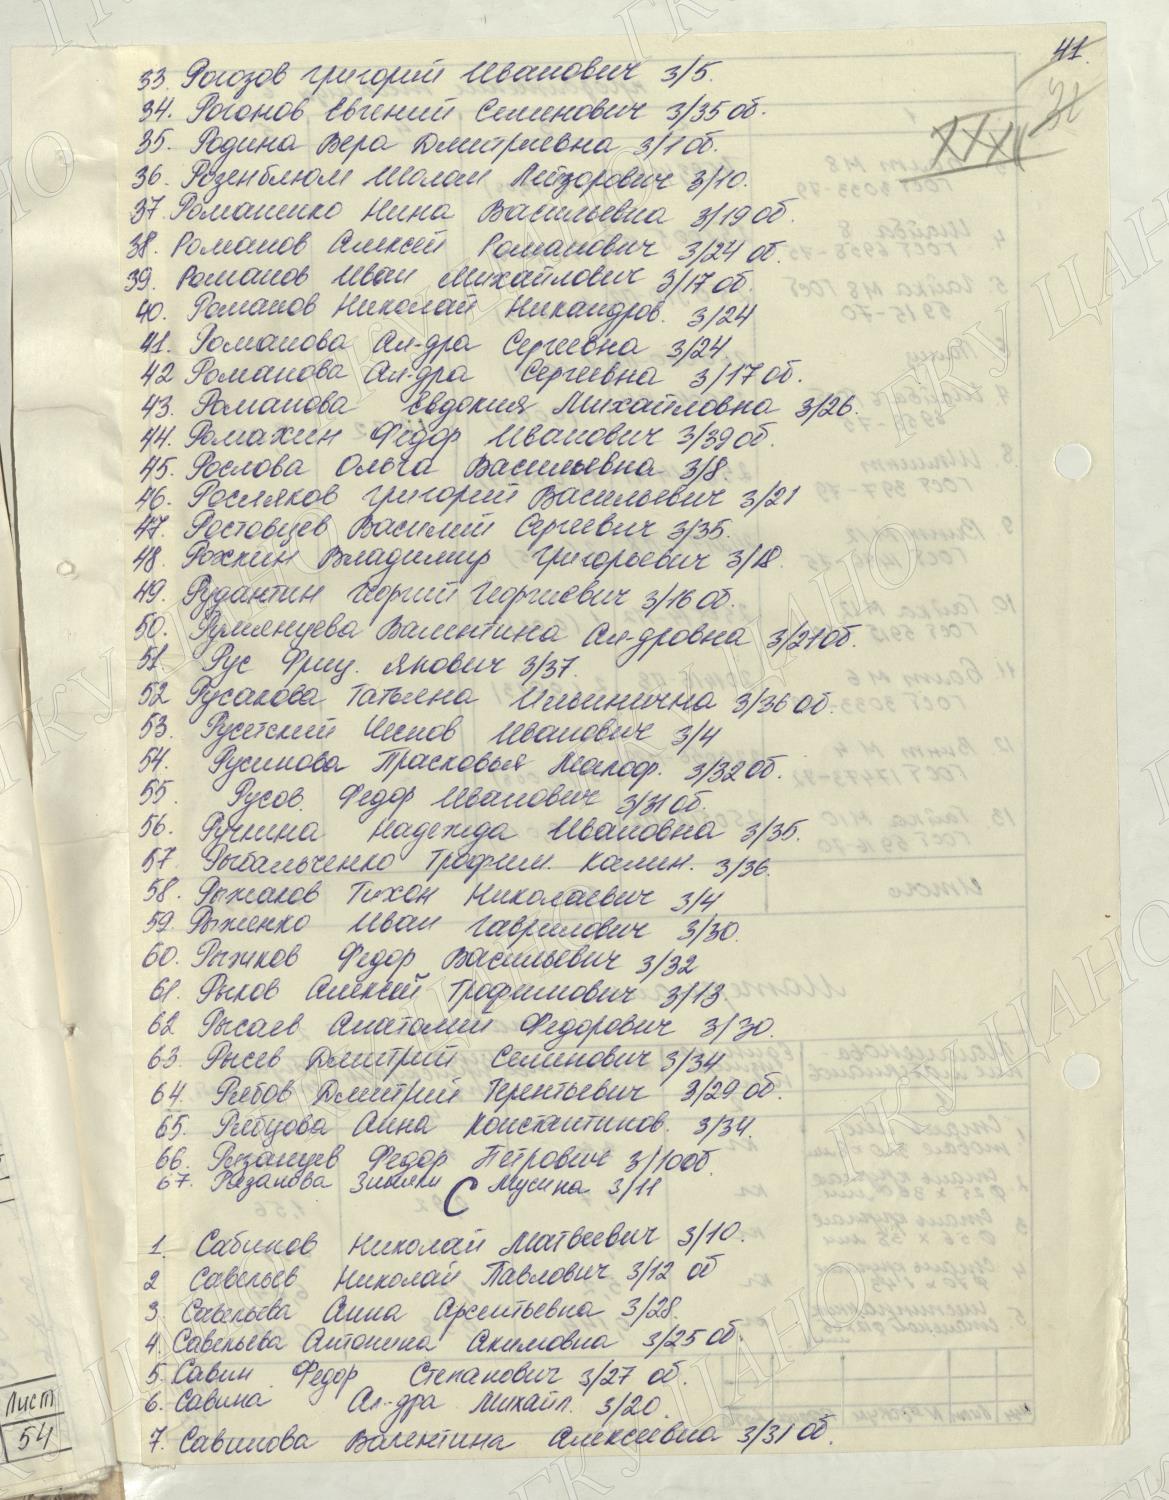 41.
XXXII
33. Рогозов Григорий Иванович 3/5.
34. Рогонов Евгений Семенович 3/35 об.
35. Родина Вера Дмитриевна 3/1 об.
36. Розенблюм Шолом Лейзорович 3/10.
37. Романенко Нина Васильевна 3/19 об.
38. Романов Алексей Романович 3/24 об.
39. Романов Иван Михайлович 3/17 об.
40. Романов Николай Никандров. 3/24
41. Романова Ал-дра Сергеевна 3/24
42 Романова Ал-дра Сергеевна 3/17 об.
43. Романова Евдокия Михайловна 3/26.
44. Ромахин Федор Иванович 3/39 об.
45. Рослова Ольга Васильевна 3/8.
46. Росляков Григорий Васильевич 3/21
47. Ростовцев Василий Сергеевич 3/35.
48. Рохкин Владимир Григорьевич 3/18.
49. Рудантин Георгий Георгиевич 3/16 об.
50. Румянцева Валентина Ал-дровна 3/21 об.
51. Рус Фриц. Якович 3/37.
52 Русакова Татьяна Ильинична 3/36 об.
53. Русетский Чеснов Иванович 3/4
54. Русинова Прасковья Малоф. 3/32 об.
55. Русов. Федор Иванович 3/31 об.
56. Ручкина Надежда Ивановна 3/35.
57. Рыбальченко Трофим. Калин. 3/36.
58. Рыжаков Тихон Николаевич 3/4
59. Рыженко Иван Гаврилович 3/30.
60. Рыжков Федор Васильевич 3/32
61. Рыков Алексей Трофимович 3/13.
62 Рысаев Анатолий Федорович 3/30.
63. Рысев Дмитрий Семенович 3/34
64. Рябов Дмитрий Терентьевич 3/29 об.
65. Рябцова Анна Константинов. 3/34.
66. Рязанцев Федор Петрович 3/10об.
67. Рязанова Мусина 3/11
С
1. Сабинов Николай Матвеевич 3/10.
2 Савельев Николай Павлович 3/12 об
3. Савельева Анна Арсентьевна 3/28.
4. Савельева Антонина Акимовна 3/25 об.
5. Савин Федор Степанович 3/27 об.
6. Савина Ал-дра Михайл. 3/20.
7. Савинова Валентина Алексеевна 3/31 об.
Лист
54